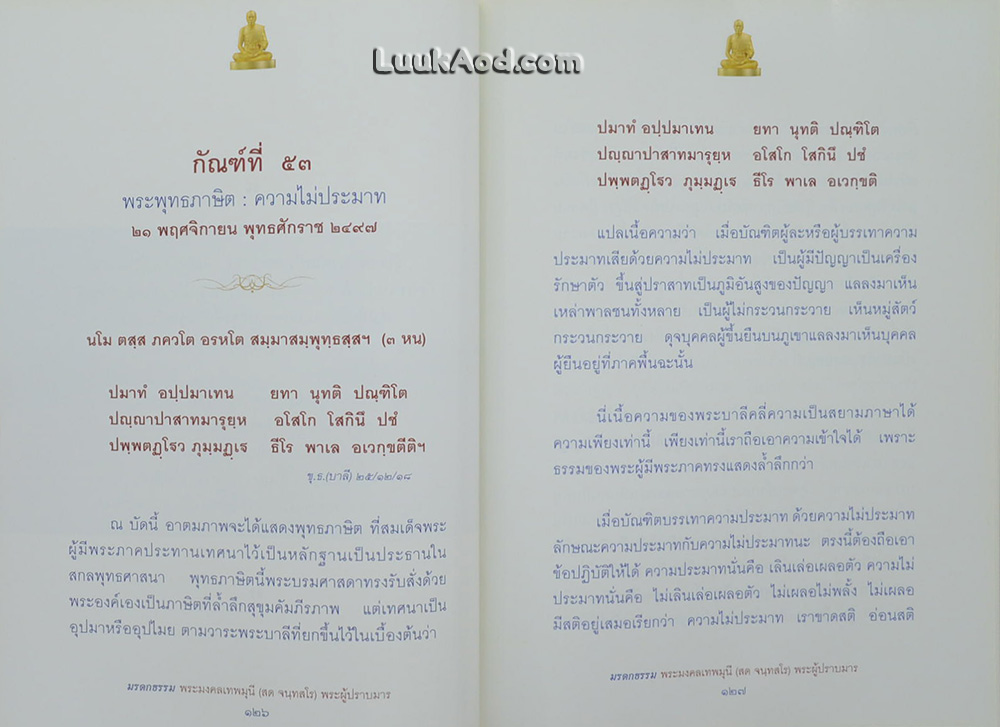 LuukAod.com
กัณฑ์ที่ ๕๓
พระพุทธภาษิต : ความไม่ประมาท
๒๑ พฤศจิกายน พุทธศักราช ๒๔๙๗
นโม ตสฺส ภควโต อรหโต สมฺมาสมฺพุทฺธสฺสฯ (๓ หน)
ปมาทํ อปฺปมาเทน ยทา นุทติ ปณฺฑิโต
ปญฺญาปาสาทมารุยฺห อโสโก โสกินึ ปชํ
ปพฺพตฏฺโฐว ภุมฺมฏฺเฐ ธีโร พาเล อเวกฺขตีติฯ
ขุ.ธ.(บาลี) ๒๕/๑๒/๑๘
ณ บัดนี้ อาตมภาพจะได้แสดงพุทธภาษิต ที่สมเด็จพระ
ผู้มีพระภาคประทานเทศนาไว้เป็นหลักฐานเป็นประธานใน
สกลพุทธศาสนา พุทธภาษิตนี้พระบรมศาสดาทรงรับสั่งด้วย
พระองค์เองเป็นภาษิตที่ล้ำลึกสุขุมคัมภีรภาพ แต่เทศนาเป็น
อุปมาหรืออุปไมย ตามวาระพระบาลีที่ยกขึ้นไว้ในเบื้องต้นว่า
มรดกธรรม พระมงคลเทพมุนี (สด จนฺทสโร) พระผู้ปราบมาร
๑๒๖
ปมาทํ อปฺปมาเทน ยทา นุทติ ปณฺฑิโต
ปญฺญาปาสาทมารุยฺห อโสโก โสกินึ ปชํ
ปพฺพตฏฺโฐว ภุมฺมฏฺเฐ ธีโร พาเล อเวกฺขติ
แปลเนื้อความว่า เมื่อบัณฑิตผู้ละหรือผู้บรรเทาความ
ประมาทเสียด้วยความไม่ประมาท เป็นผู้มีปัญญาเป็นเครื่อง
รักษาตัว ขึ้นสู่ปราสาทเป็นภูมิอันสูงของปัญญา แลลงมาเห็น
เหล่าพาลชนทั้งหลาย เป็นผู้ไม่กระวนกระวาย เห็นหมู่สัตว์
กระวนกระวาย ดุจบุคคลผู้ขึ้นยืนบนภูเขาแลลงมาเห็นบุคคล
ผู้ยืนอยู่ที่ภาคพื้นฉะนั้น
นี่เนื้อความของพระบาลีคลี่ความเป็นสยามภาษาได้
ความเพียงเท่านี้ เพียงเท่านี้เราถือเอาความเข้าใจได้ เพราะ
ธรรมของพระผู้มีพระภาคทรงแสดงล้ำลึกกว่า
เมื่อบัณฑิตบรรเทาความประมาท ด้วยความไม่ประมาท
ลักษณะความประมาทกับความไม่ประมาทนะ ตรงนี้ต้องถือเอา
ข้อปฏิบัติให้ได้ ความประมาทนั่นคือ เลินเล่อเผลอตัว ความไม่
ประมาทนั่นคือ ไม่เลินเล่อเผลอตัว ไม่เผลอไม่พลั้ง ไม่เผลอ
มีสติอยู่เสมอเรียกว่า ความไม่ประมาท เราขาดสติ อ่อนสติ
มรดกธรรม พระมงคลเทพมุนี (สด จนฺทสโร) พระผู้ปราบมาร
๑๒๗